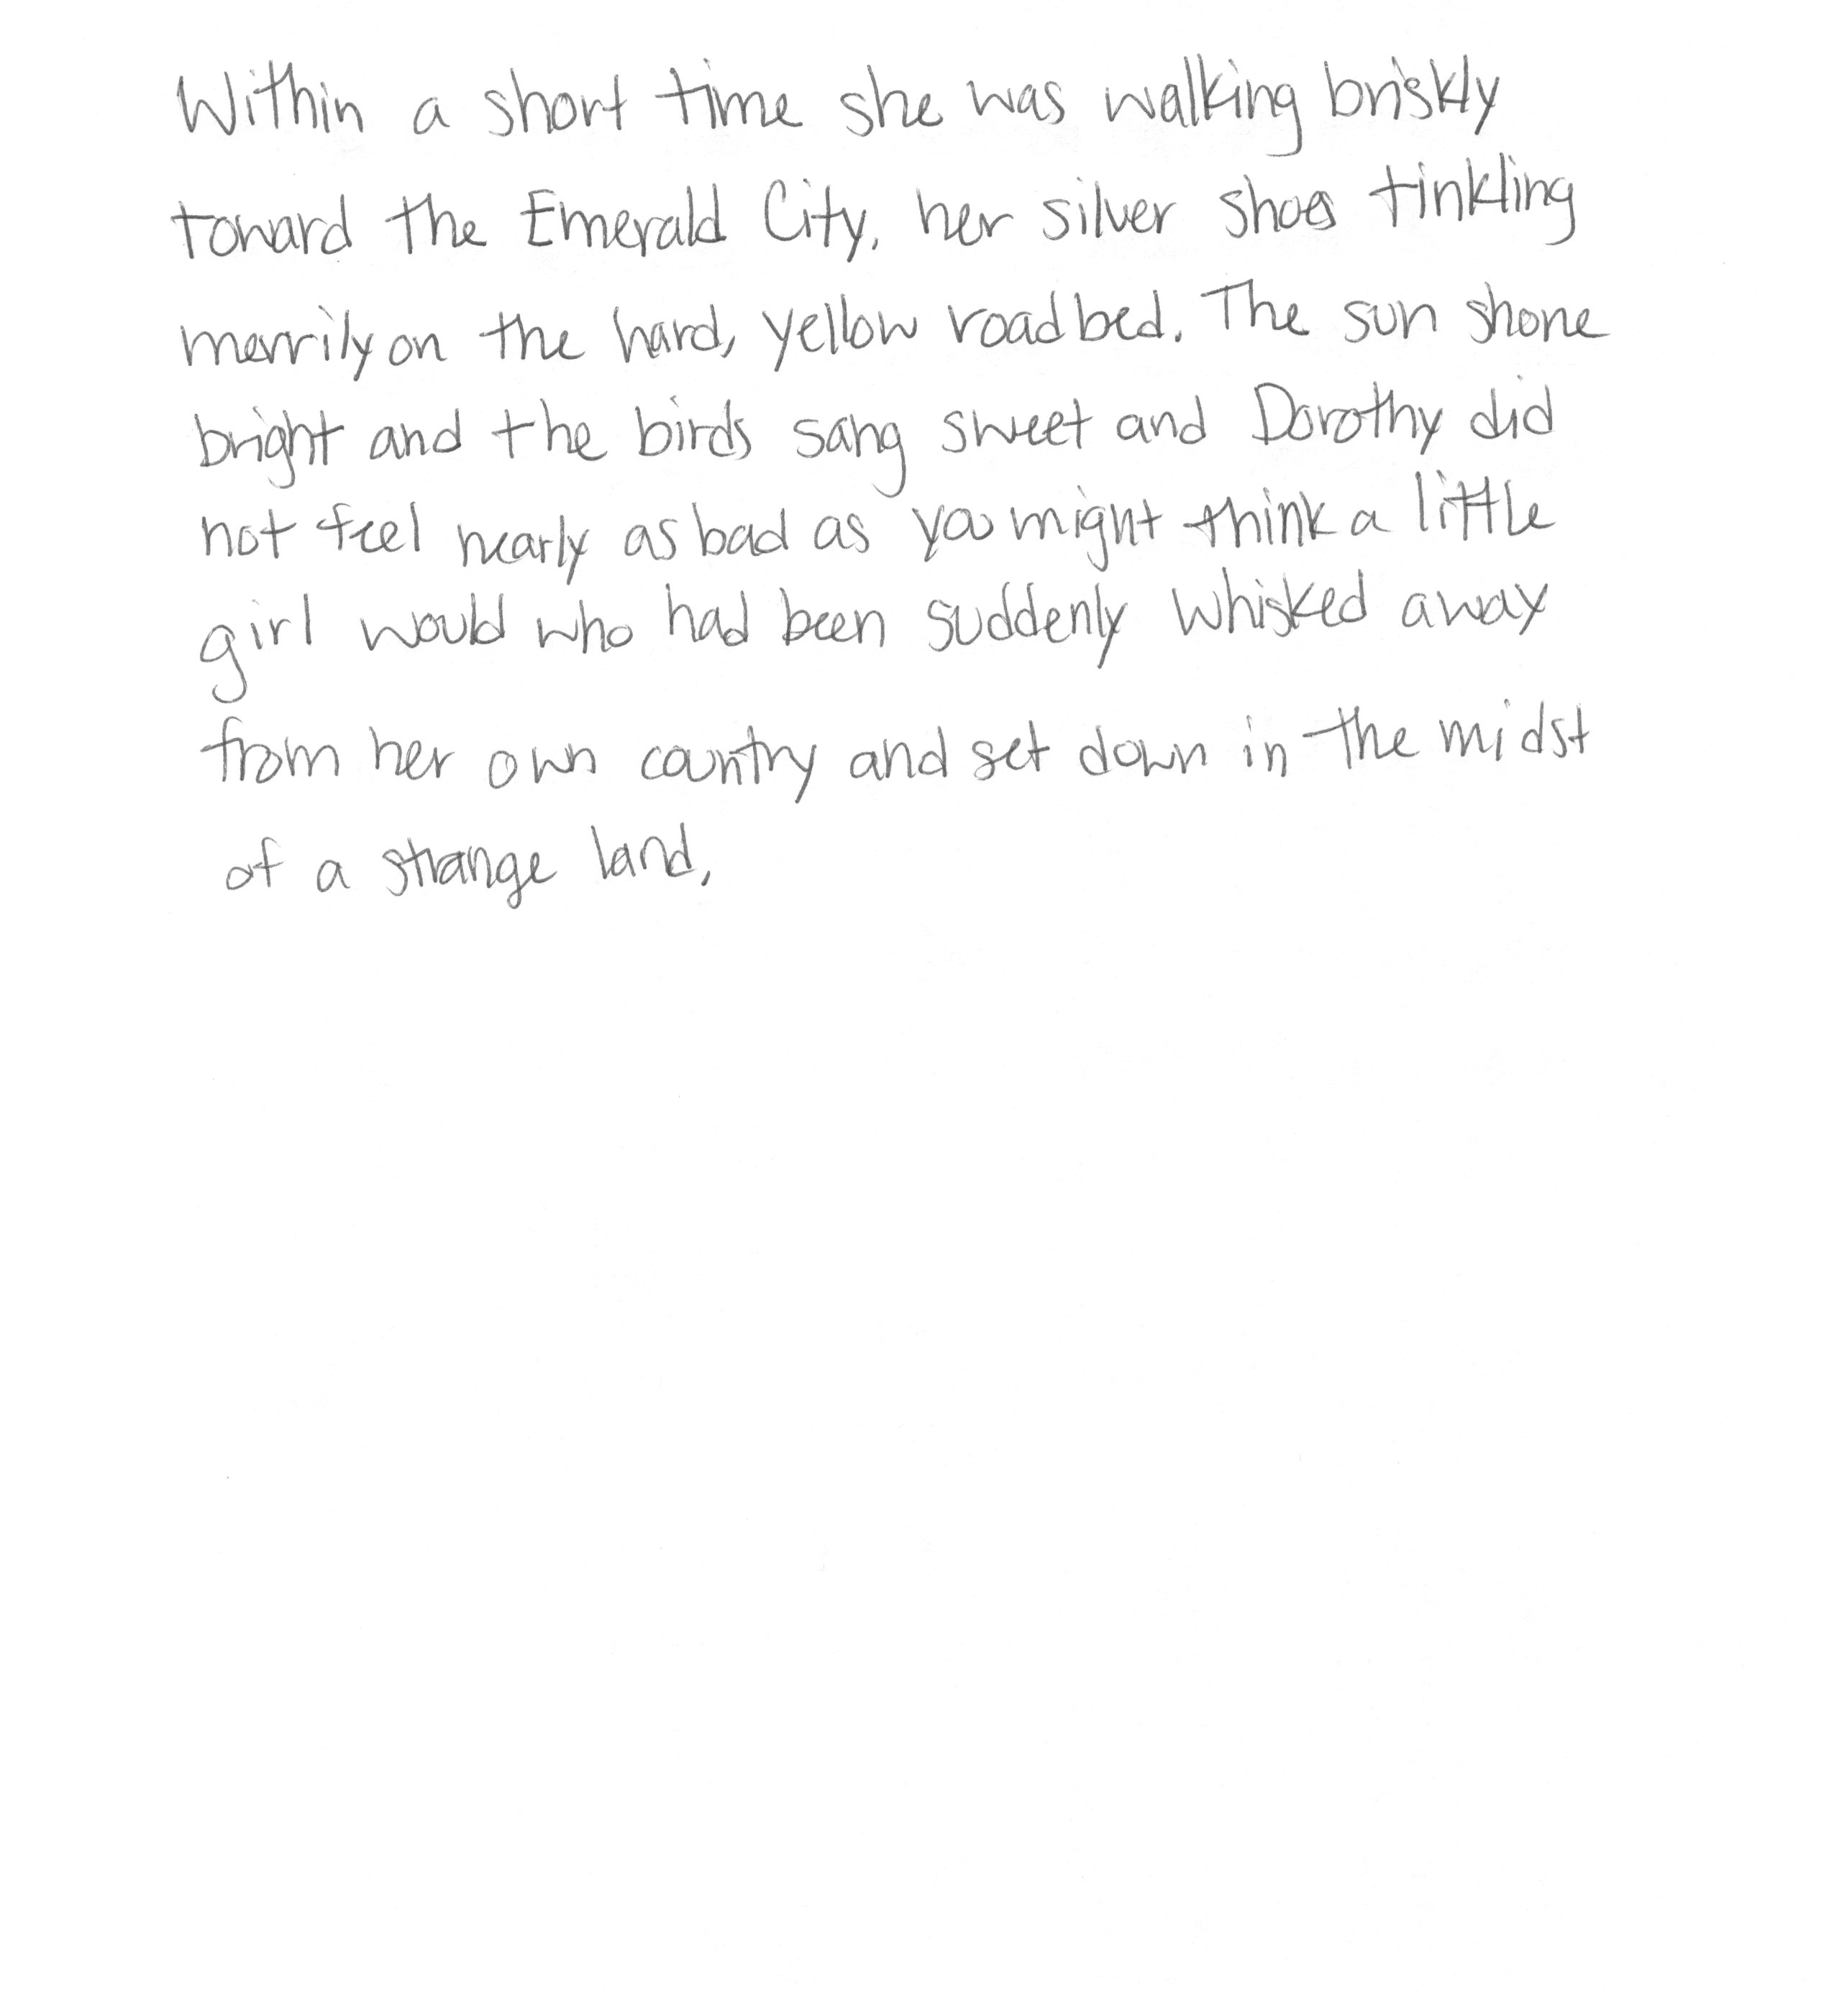 Within a short time she was walking briskly
toward the Emerald City, her silver shoes tinkling
merrily on the hard, yellow roadbed. The sun shone
bright and the birds sang sweet and Dorothy did
not feel nearly as bad as you might think a little
girl would who had been suddenly whisked away
from her own country and set down in the midst
of a strange land,